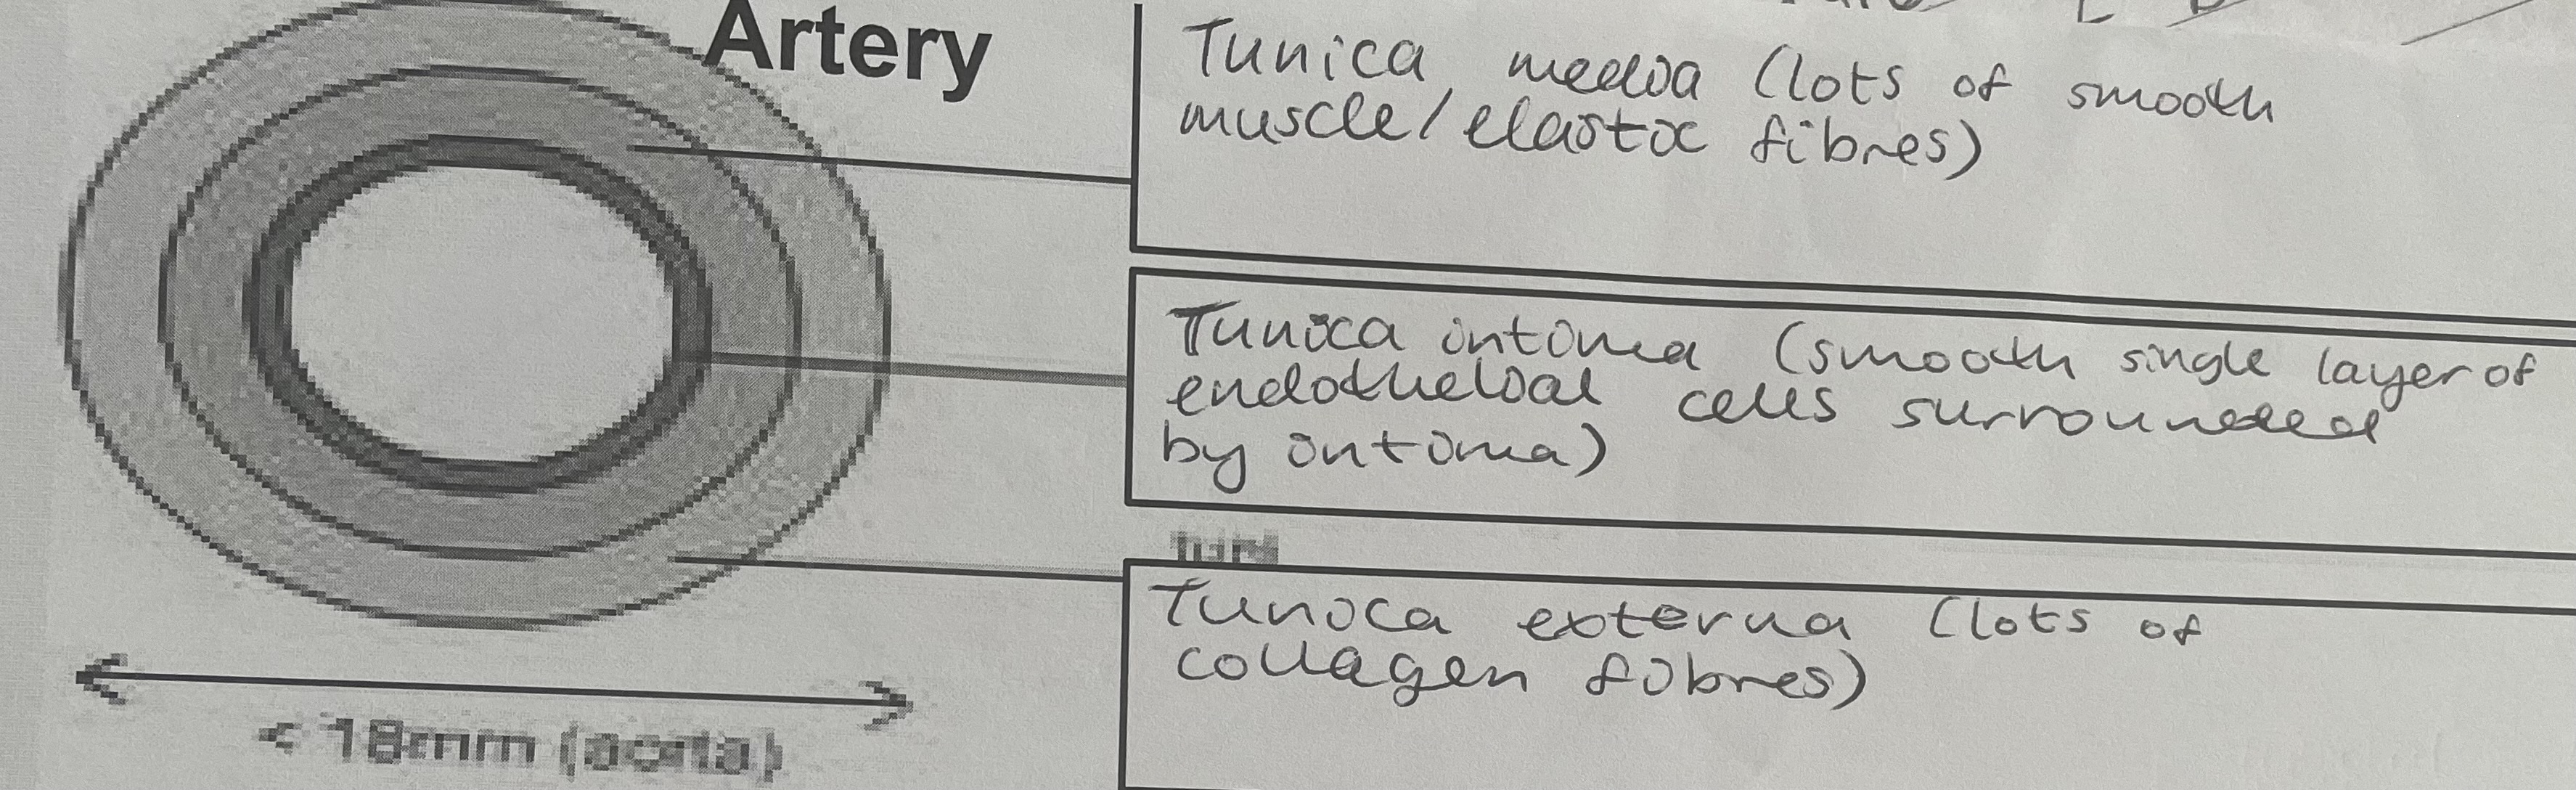 Artery
Tunica media (lots of smooth
muscle/elastic fibres)
Tunica intima (smooth single layer of
endothelial cells surrounded
by intima)
Tunica externa (lots of
collagen fibres)
< 18mm (aorta)